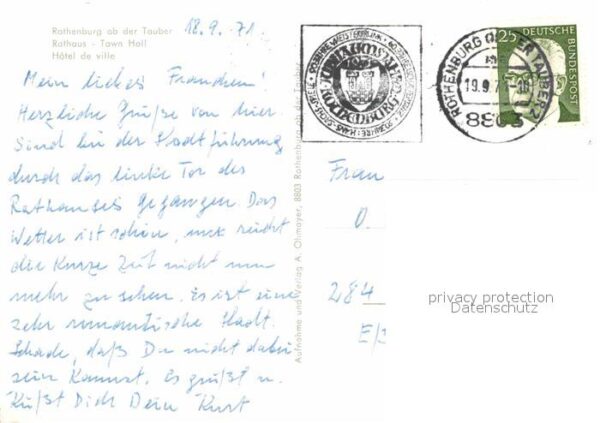 Rothenburg ob der Tauber
Rathaus - Town Hall
Hôtel de ville
18.9.71
Mein liebes Frauchen!
Herzliche Grüße von hier.
Sind bei der Stadtführung
durch das linke Tor des
Rathauses gegangen. Das
Wetter ist schön, nur reicht
die Kurze Zeit nicht um
mehr zu sehen. Es ist eine
sehr romantische Stadt.
Schade, daß Du nicht dabei
sein Kannst. Es grüßt u.
Küßt Dich Dein Kurt
Aufnahme und Verlag A. Ohmayer, 8803 Rothenburg ob der Tauber
ROTHENBURG
ROTHENBURG O. DER TAUBER 2
19.9.71
8803
25
DEUTSCHE
BUNDESPOST
Frau
O.
284
privacy protection
Datenschutz